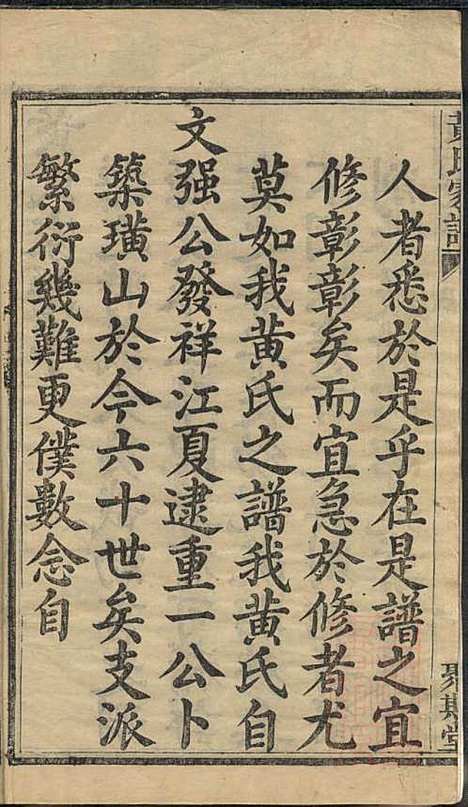 黃氏家譜
聚期堂
人者悉於是乎在是譜之宜
修彰彰矣而宜急於修者尤
莫如我黃氏之譜我黃氏自
文强公發祥江夏逮重一公卜
築璜山於今六十世矣支派
繁衍幾難更僕數念自